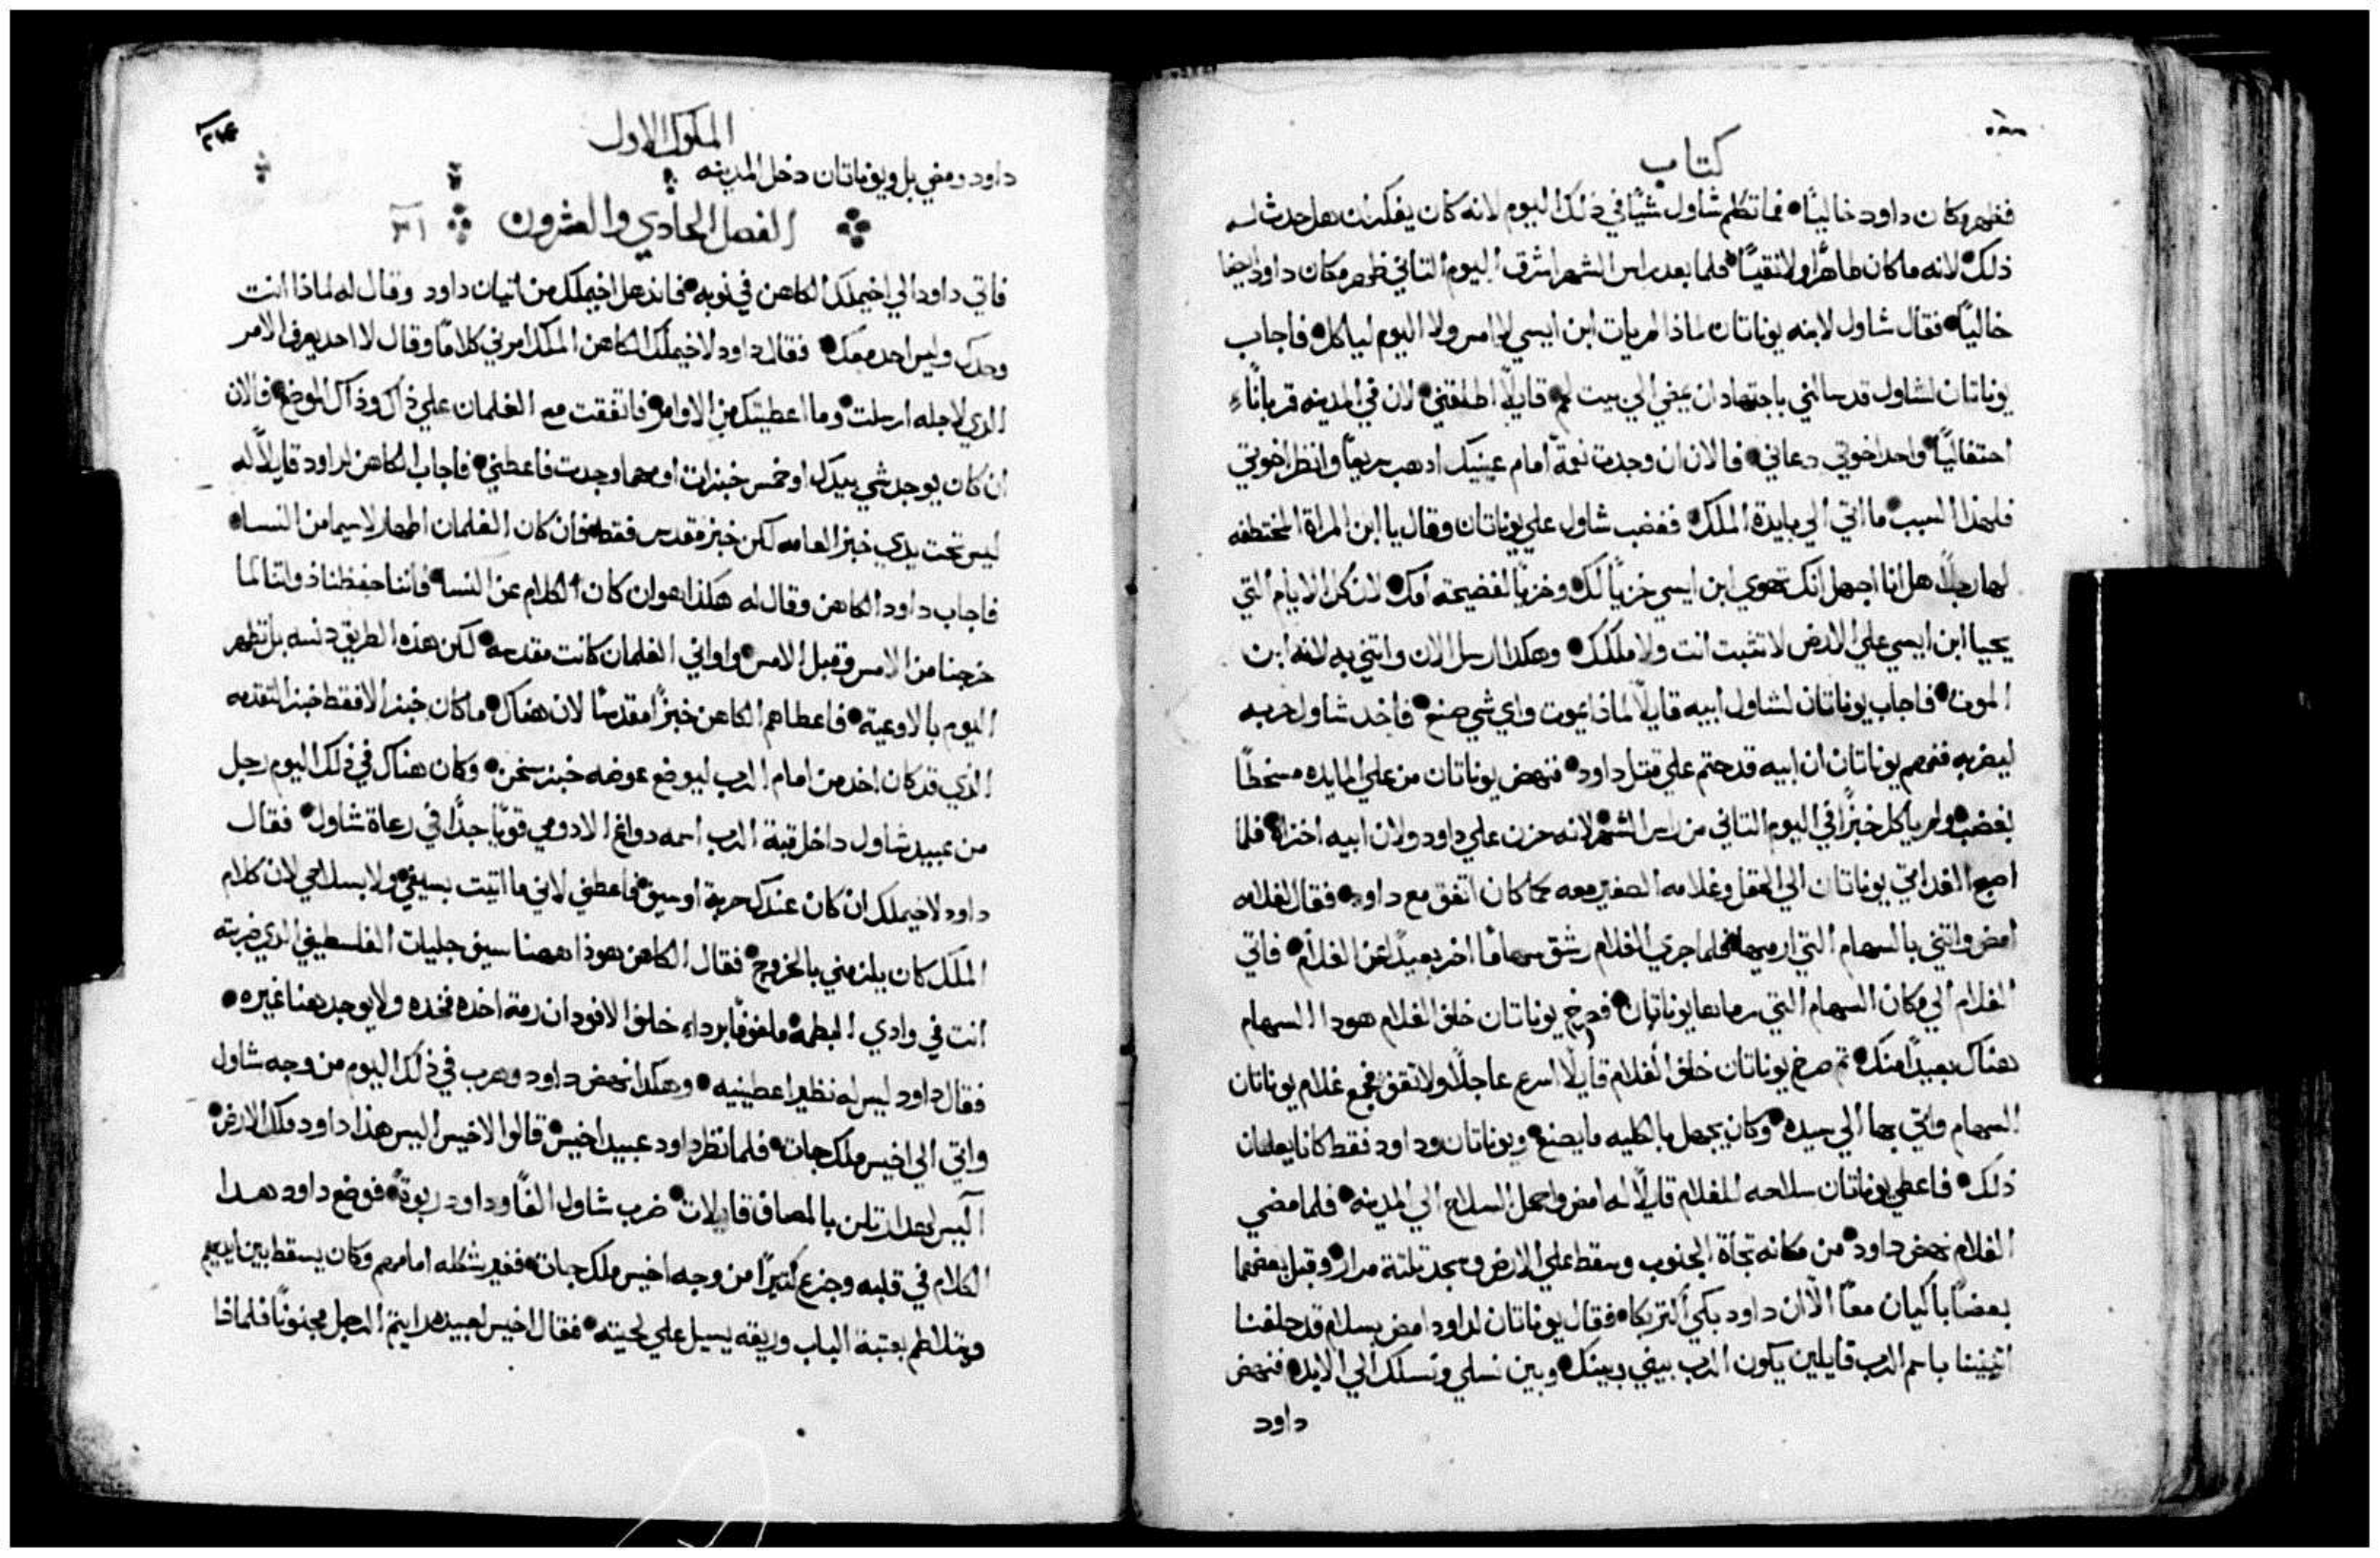 كتاب
فظهر وكان داود خاليًا فما تكلم شاول شيًا في ذلك اليوم لانه كان يفكر ان هل حدث له
ذلك لانه ما كان طاهرًا ولا نقيًا فلما بعد راس الشهر اشرق اليوم التاني ظهر مكان داود ايضا
خاليًا فقال شاول لابنه يوناتان لماذا لم يات ابن ايسي لا امس ولا اليوم لياكل فاجاب
يوناتان لشاول قد سالني باجتهاد ان يمضي الي بيت لحم قايلًا اطلقني لان في المدينه قربانًا
احتفاليًا واحد اخوتي دعاني فالان ان وجدت نعمة امام عينيك ادهب سريعًا وانظر اخوتي
فلهذا السبب ما اتي الي مايدة الملك فغضب شاول علي يوناتان وقال يا ابن المراة المختطفه
لها رجلًا هل انا اجهل انك تهوي ابن ايسي خزيًا لك وخزيًا لفضيحة امك لان كل الايام التي
يحيا ابن ايسي علي الارض لا تثبت انت ولا ملكك وهكدا ارسل الان واتني به لانه ابن
الموت فاجاب يوناتان لشاول ابيه قايلًا لماذا يموت واي شي صنع فاخد شاول حربه
ليضربه ففهم يوناتان ان ابيه قد حتم علي قتل داود فنهض يوناتان من علي المايده مسخطًا
بغضب ولم ياكل خبزًا في اليوم التاني من راس الشهر لانه حزن علي داود ولان ابيه اخزاه فلما
اصبح الغد اتي يوناتان الي الحقل وغلامه الصغير معه كما كان اتفق مع داود فقال لغلامه
امض واتني بالسهام التي ارميها فلما جري الغلام رشق سهامًا اخر بعيدًا عن الغلام فاتي
الغلام الي مكان السهام التي رماها يوناتان فصرخ يوناتان خلف الغلام هودا السهام
هناك بعيدًا منك تم صرخ يوناتان خلف الغلام قايلًا اسرع عاجلًا ولا تقف فجمع غلام يوناتان
السهام واتي بها الي سيده وكان يجهل بالكليه ما يصنع ويوناتان وداود فقط كانا يعلمان
ذلك فاعطي يوناتان سلاحه للغلام قايلًا له امض واحمل السلاح الي المدينه فلما مضي
الغلام نهض داود من مكانه تجاة الجنوب وسقط علي الارض وسجد تلتة مرار وقبل بعضهما
بعضًا باكيان معًا الا ان داود بكي اكتر بكاه فقال يوناتان لداود امض بسلام قد حلفنا
اتنيننا باسم الرب قايلين يكون الرب بيني وبينك وبين نسلي ونسلك الي الابد فنهض
داود
الملوك الاول
داود ومضي بل ويوناتان دخل المدينه
الفصل الحادي والعشرون ٢١
فاتي داود الي اخيملك الكاهن في نوبه فاندهل اخيملك من اتيان داود وقال له لماذا انت
وحدك وليس احد معك فقال داود لاخيملك الكاهن الملك امرني كلامًا وقال لا احد يعرف الامر
الدي لاجله ارسلت وما اعطيتك من الاوامر فاتفقت مع الغلمان علي ذاك وذاك الموضع فالان
ان كان يوجد شي بيدك او خمس خبزات او مهما وجدت فاعطني فاجاب الكاهن لداود قايلًا له
ليس تحت يدي خبز العامه لكن خبز مقدس فقط فان كان الغلمان اطهار لاسيما من النسا
فاجاب داود الكاهن وقال له هكذا هو ان كان الكلام عن النسا فاننا حفظنا ذواتنا لما
خرجنا من الامس وقبل الامس واواني الغلمان كانت مقدسه لكن هذه الطريق دنسه بل تطهر
اليوم بالاوعية فاعطاهم الكاهن خبزًا مقدسًا لان هناك ما كان خبز الا فقط خبز التقدمه
الذي قد كان اخد من امام الرب ليوضع عوضه خبز سخن وكان هناك في ذلك اليوم رجل
من عبيد شاول داخل قبة الرب اسمه دواغ الادومي قويًا جدًا في رعاة شاول فقال
داود لاخيملك ان كان عندك حربة او سيف فاعطني لاني ما اتيت بسيفي ولا بسلاحي لان كلام
الملك كان يلزمني بالخروج فقال الكاهن هوذا ههنا سيف جليات الفلسطيني الدي ضربته
انت في وادي البطمه ملفوفًا برداء خلف الافود ان رمت اخده فخده ولا يوجد هنا غيره
فقال داود ليس له نظير اعطينيه وهكدا نهض داود وهرب في ذلك اليوم من وجه شاول
واتي الي اخيس ملك جات فلما نظر داود عبيد اخيس قالوا لاخيس اليس هذا داود ملك الارض
اليس لهدا رتلن بالمصاف قايلات ضرب شاول الفًا وداود ربوة فوضع داود هدا
الكلام في قلبه وجزع كتيرًا من وجه اخيس ملك جات فغير شكله امامهم وكان يسقط بين ايديهم
ويتلاطم بعتبة الباب وريقه يسيل علي لحيته فقال اخيس لعبيده رايتم الرجل مجنونًا فلماذا